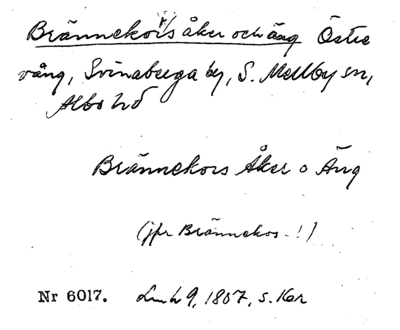 Brännekors åker och äng Östre
vång, Svinaberga by, S. Mellby sn,
Albo hd
Brännekors Åker o Äng
(jfr Brännekos-!)
Nr 6017. 9, 1807, s.